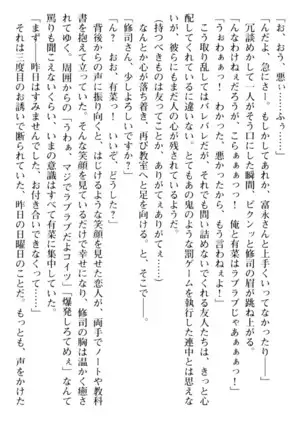 「お、おう、悪ぃ……ふぅ……」
「んだよ、急にさー。もしかしてあれか、富永さんと上手くいってなかったり――」
冗談めかして一人がそう口にした瞬間、ピクンッと修司の眉が跳ね上がる。
「んなわねぇだろうが、こらぁぁぁっっ! 俺と有菜はラブラブじゃあぁぁぁっ!」
「うおわぁぁっ! わかった、悪かったから、もう言わねぇよ!」
こう取り乱してはバレバレだが、それでも問い詰めないでくれる友人たちは、きっと心
配してくれているに違いない。とてもあの鬼のような罰ゲームを執行した連中とは思えな
いが、彼らにもまだ人の心が残されているようだ。
(持つべきものは友ってことか、ありがてぇありがてぇ……)
なんとか心が落ち着き、再び教室へと足を向ける。と、そこで――。
「修司さん、少しよろしいですか?」
「ん? おお、有菜! いいぞ、どうした?」
背後からの声に振り向くと、はにかむような笑顔を見せた恋人が、両手でノートや教科
書を抱えて立っていた。そんな笑顔を見ているだけで幸せになり、修司の胸は温かく癒さ
れてゆく。周囲からの「うわぁ、マジでラブラブだよコイツ」「爆発しろてめぇ」なんて
罵りも聞こえないくらい、いまの意識はすべて有菜に集中していた。
「その――昨日はすみませんでした、お付き合いできなくって……」
それは三度目のお誘いで断られていた、昨日の日曜日のことだ。もっとも、声をかけた